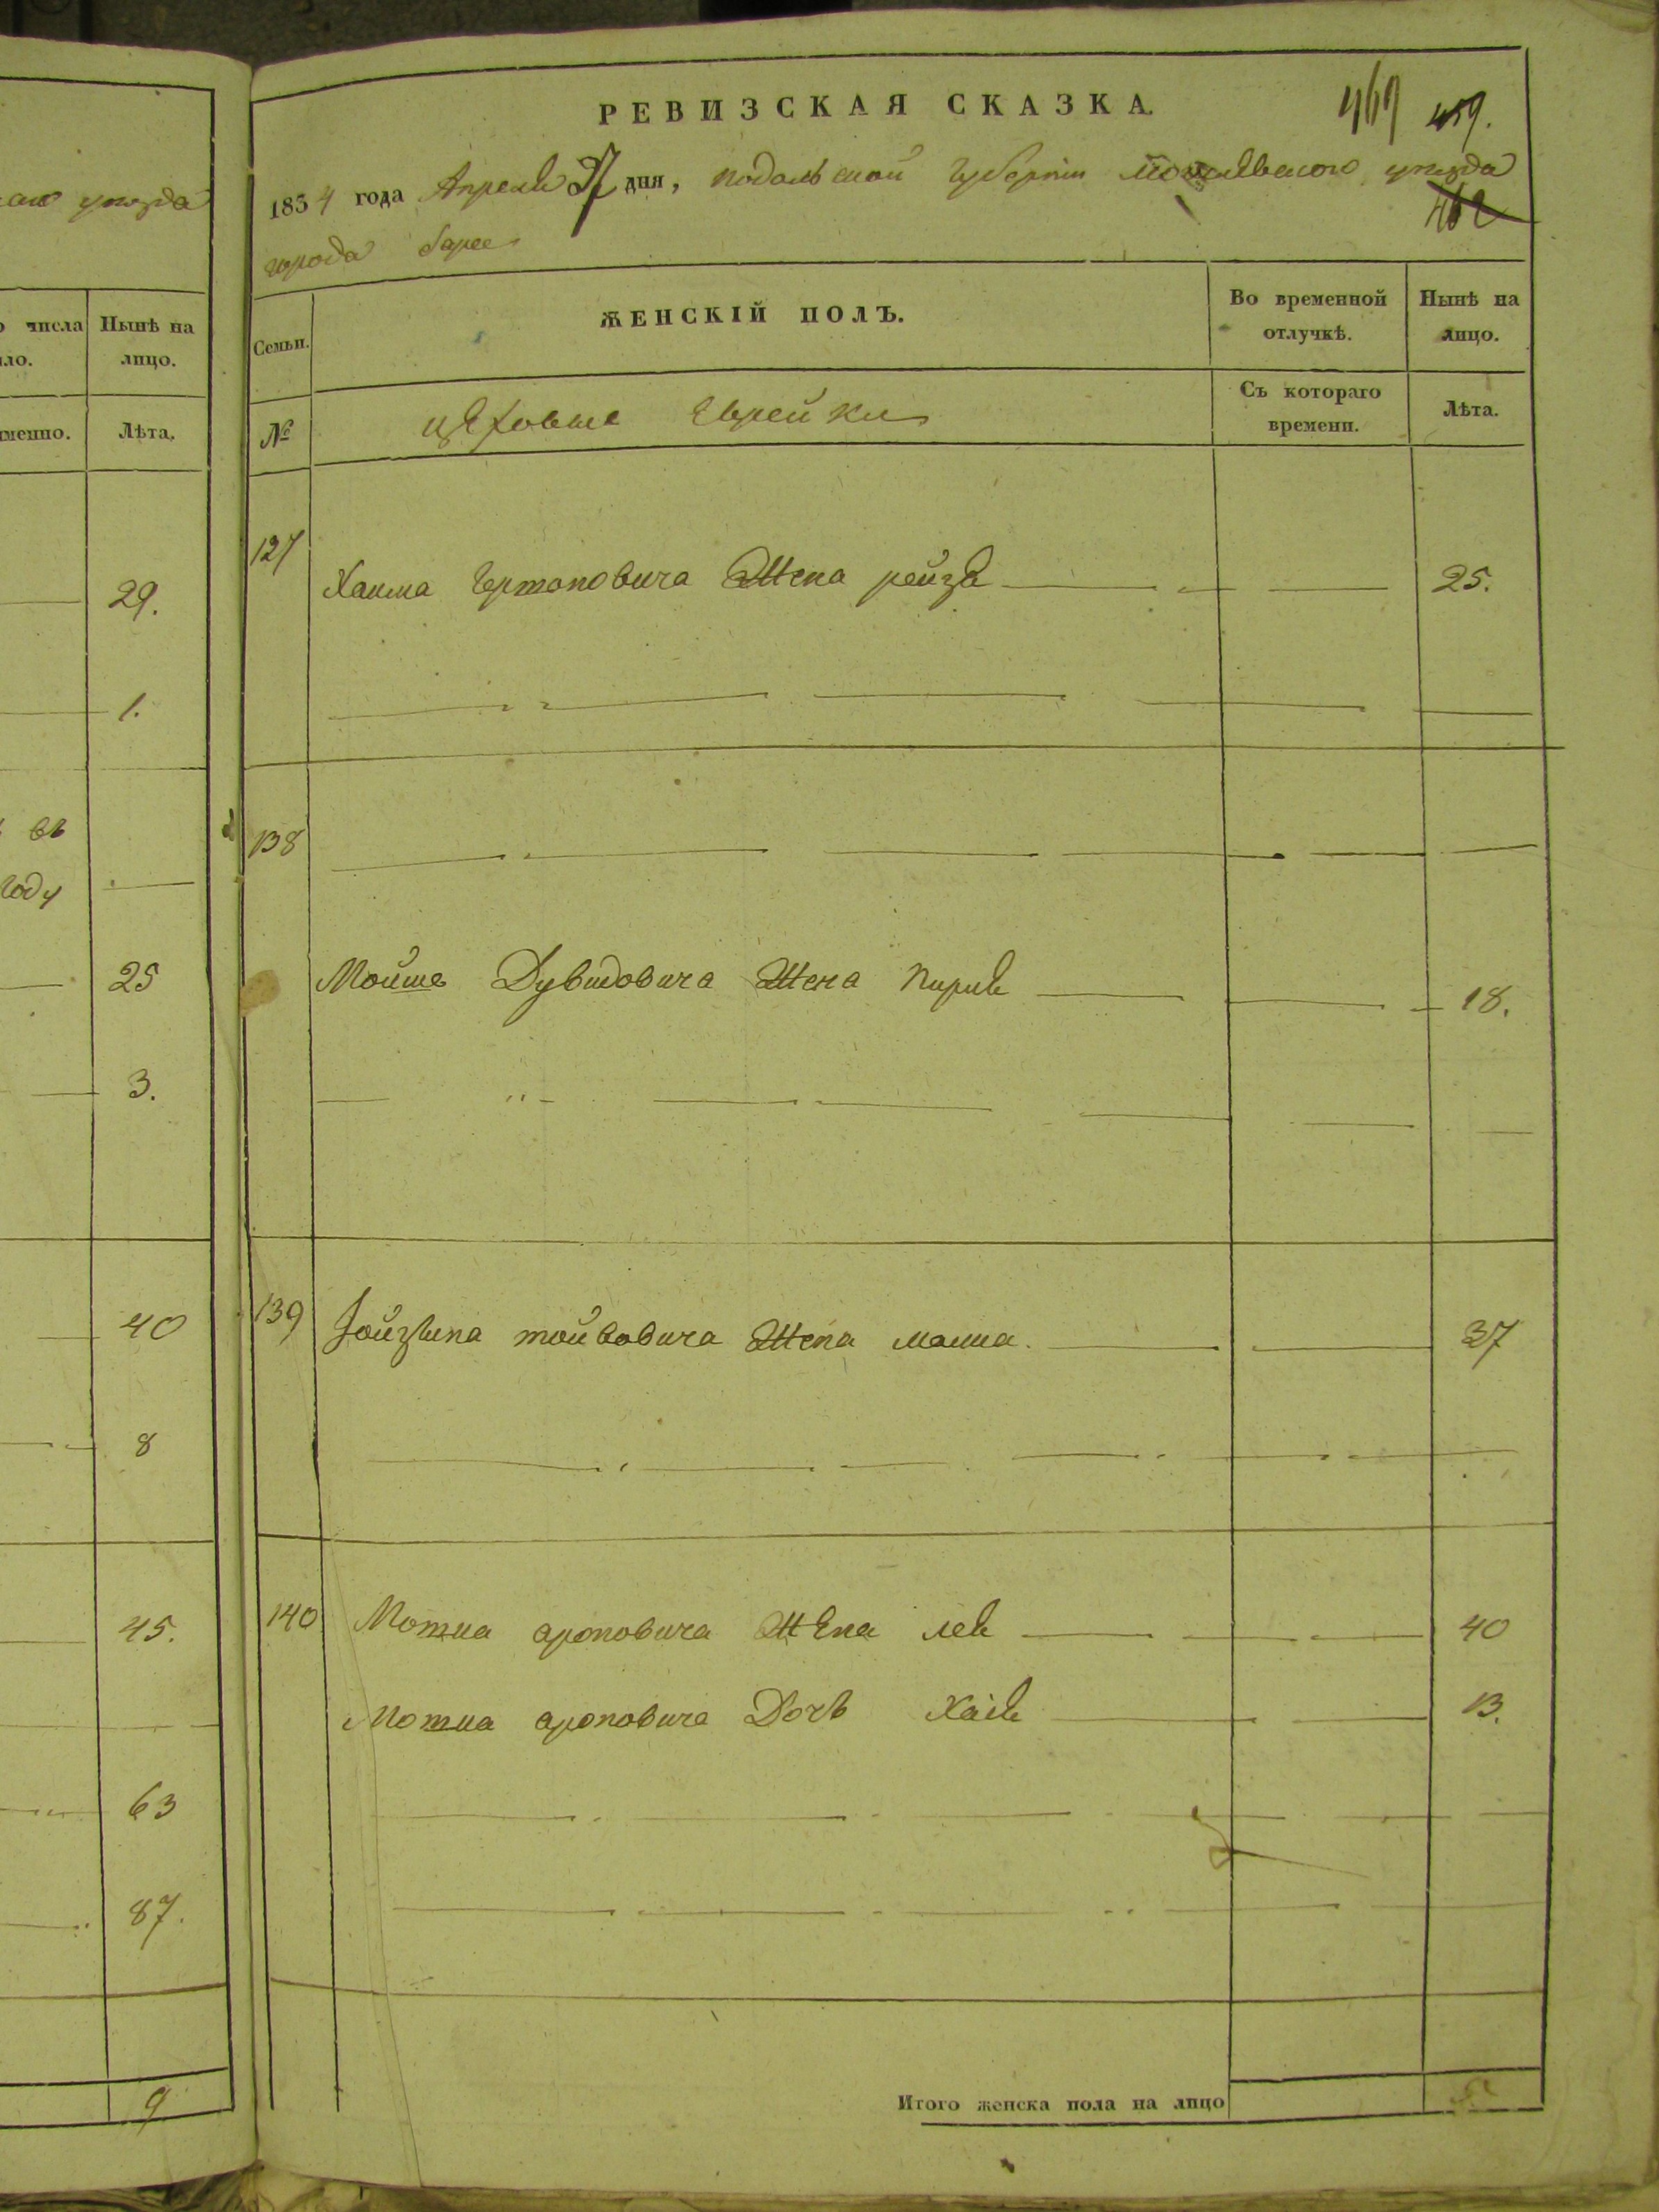 аго уезда
о числа Нынѣ на
ло. лицо.
именно. Лѣта.
29.
1.
въ
году
25
3.
40
8
45.
63
87.
9
РЕВИЗСКАЯ СКАЗКА.
469 459.
1834 года Апреля 27 дня, подольской губерніи уезда
462
города
Семьи. ЖЕНСКІЙ ПОЛЪ. Во временной отлучкѣ. Нынѣ на лицо.
№ цеховые Еврейки Съ котораго времени. Лѣта.
127
Хаима Жена рейзя 25.
138
Мойше Дувидовича Жена Пирля 18.
139
Жена малша. 37
140 Мотя ароновича жена лея 40
Мотя ароновича Дочь Хая 13.
Итого женска пола на лицо 5